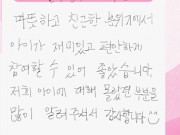 따뜻하고 친근한 분위기에서
아이가 재미있고 편안하게
참여할 수 있어 좋았습니다.
저희 아이에 대해 몰랐던 부분을
많이 알려주셔서 감사합니다